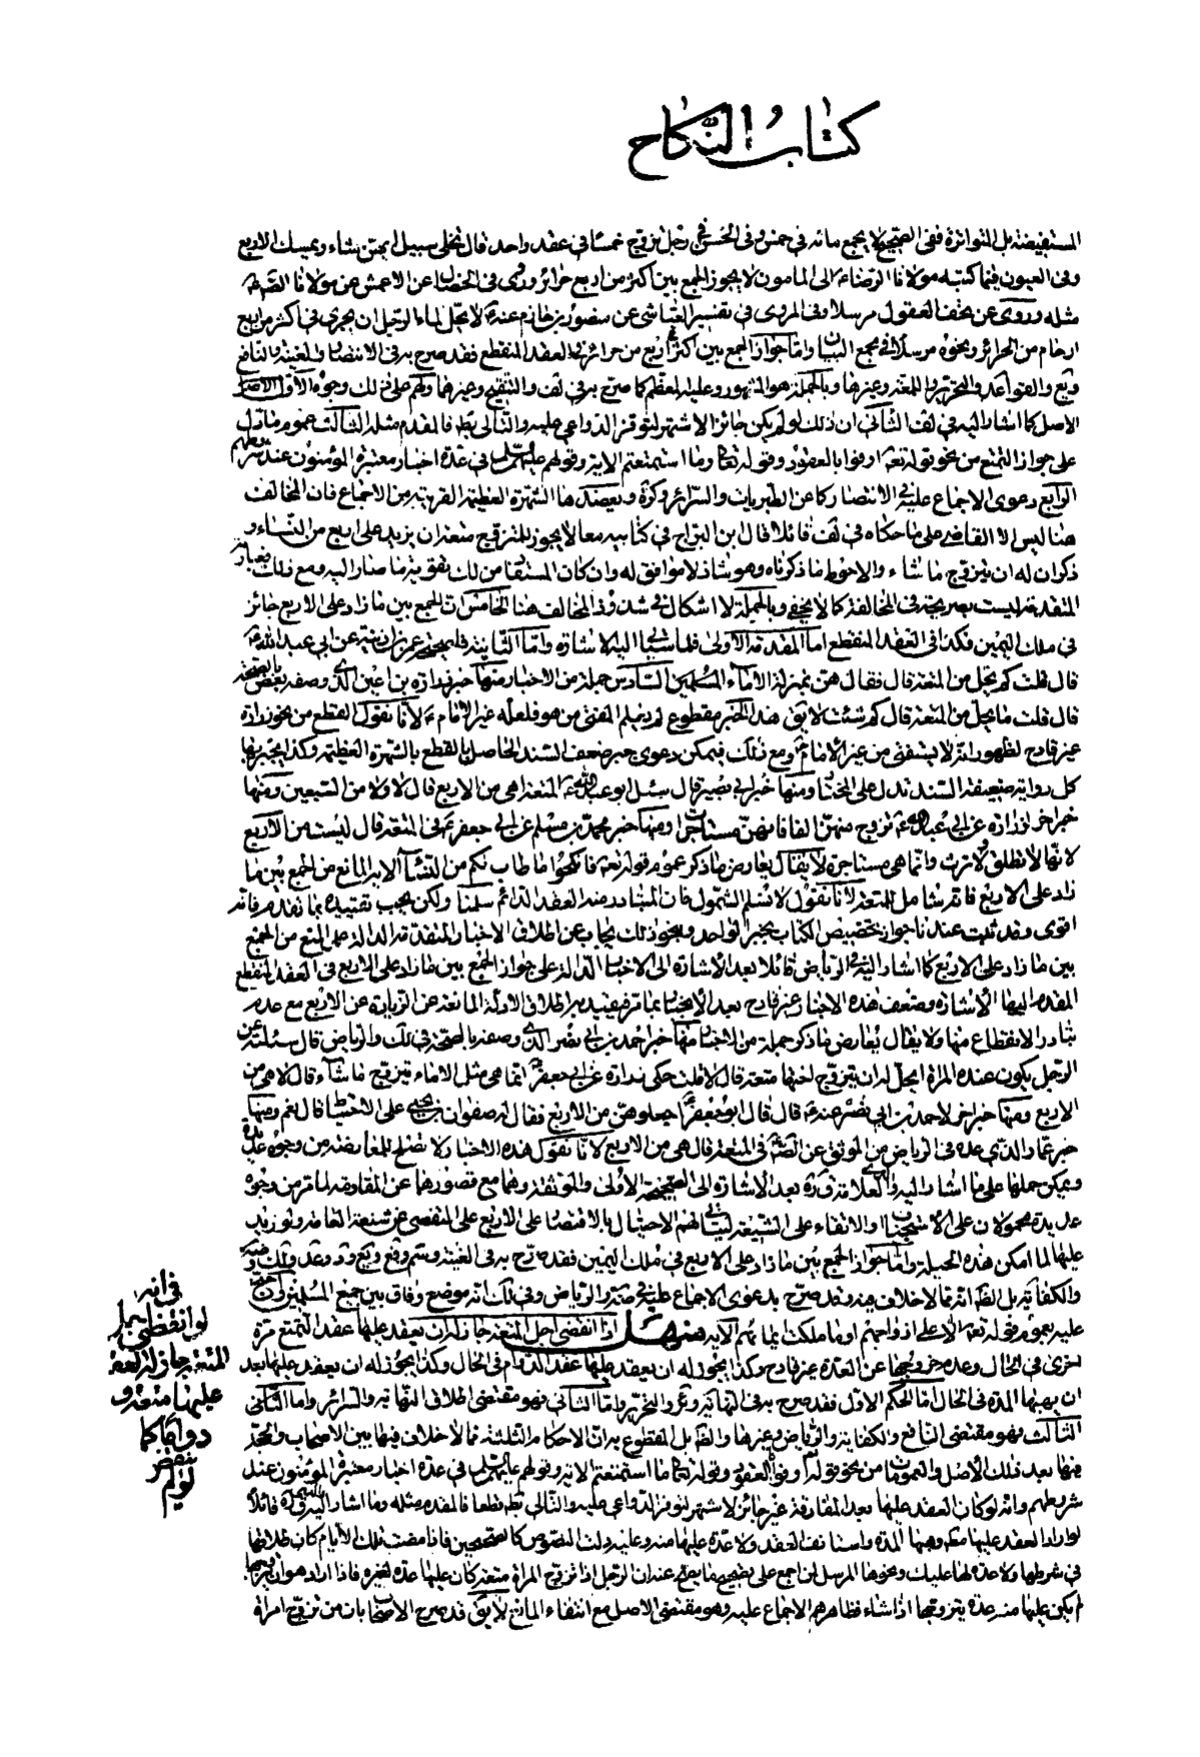 كتاب النكاح
المستفيضة بل المتواترة ففى الصحيح لا يجمع مائه فى خمس وفى الحسن فى رجل تزوج خمسا فى عقد واحد قال يخلى سبيل ايتهن شاء ويمسك الاربع
وفى العيون فيما كتبه مولانا الرضاء الى المامون لا يجوز الجمع بين اكثر من اربع حرائر وروى فى الخصال عن الاعمش عن مولانا الصادق
مثله وروى عن تحف العقول مرسلا وفى المروى فى تفسير العياشى عن منصور بن حازم عنه لا يحل لماء الرجل ان يجرى فى اكثر من اربع
ارحام من الحرائر ونحوه مرسلا فى مجمع البيان واما جواز الجمع بين اكثر من اربع من حرائر فى العقد المنقطع فقد صرح به فى الانتصار والغنية والنافع
ويع والقواعد والتحرير واللمعة وغيرها وبالجملة هو المشهور وعليه المعظم كما صرح به فى لف والتنقيح وغيرهما ولهم على ذلك وجوه الاول الاصل
الاصل كما اشار اليه فى لف الثانى ان ذلك لو لم يكن جائزا لاشتهر لتوفر الدواعى عليه والتالى بط فالمقدم مثله الثالث عموم ما دل
على جواز التمتع من نحو قوله تعم اوفوا بالعقود وقوله تعالى وما استمتعتم الاية وقولهم فى عدة اخبار معتبرة المؤمنون عند شروطهم
الرابع دعوى الاجماع عليه فى الانتصار كما عن الطبريات والسرائر وكرة ويعضدها الشهرة العظيمة القريبة من الاجماع فان المخالف
هنا ليس الا القاضى على ما حكاه فى لف قائلا قال ابن البراج فى كتابيه معا لا يجوز للمتزوج متعة ان يزيد على اربع من النساء و
ذكر ان له ان يتزوج ما شاء والاحوط ما ذكرناه وهو شاذ لا موافق له وان كان المستفاد من لك تقويته ما صار اليه ومع ذلك فعبارته
المتقدمة ليست بصريحة فى المخالفة كما لا يخفى وبالجملة لا اشكال فى شذوذ المخالف هنا الخامس ان الجمع بين ما زاد على الاربع جائز
فى ملك اليمين فكذا فى العقد المنقطع اما المقدمة الاولى فلما سياتى اليه الاشارة واما الثانية فلصحيح عمر بن اذينة عن ابى عبد الله
قال قلت كم يحل من المتعة قال فقال هن بمنزلة الاماء السادس جملة من الاخبار منها خبر زرارة بن اعين الذى وصفه بعض بالصحة
قال قلت ما يحل من المتعة قال كم شئت لا يق هذا الخبر مقطوع لم يعلم المفتى من هو فلعله غير الامام لانا نقول القطع من نحو زرارة
غير قادح لظهور انه لا يستفتى من غير الامام ومع ذلك فيمكن دعوى جبر ضعف السند الحاصل بالقطع بالشهرة العظيمة وكذا يجبر بها
كل رواية ضعيفة السند تدل على المختار ومنها خبر ابى بصير قال سئل ابو عبد الله عن المتعة اهى من الاربع قال لا ولا من السبعين ومنها
خبر اخر لزرارة عن ابى عبد الله تزوج منهن الفا فانهن مستاجرات ومنها خبر محمد بن مسلم عن ابى جعفر فى المتعة قال ليست من الاربع
لانها لا تطلق ولا ترث وانما هى مستاجرة لا يقال يعارض ما ذكر عموم قوله تعم فانكحوا ما طاب لكم من النساء الاية المانع من الجمع بين ما
زاد على الاربع فانه شامل للمتعة لانا نقول لا نسلم الشمول فان المتبادر منه العقد الدائم سلمنا ولكن يجب تقييده بما تقدم فانه
اقوى وقد ثبت عندنا جواز تخصيص الكتاب بخبر الواحد وبنحو ذلك يجاب عن اطلاق الاخبار المتقدمة الدالة على المنع من الجمع
بين ما زاد على الاربع كما اشار اليه فى الرياض قائلا بعد الاشارة الى الاخبار الدالة على جواز الجمع بين ما زاد على الاربع فى العقد المنقطع
المقدم اليها الاشارة وضعف هذه الاخبار غير قادح بعد الانجبار بما مر فيقيد بها اطلاق الادلة المانعة عن الزيادة عن الاربع مع عدم
تبادر الانقطاع منها ولا يقال يعارض ما ذكر جملة من الاخبار منها خبر احمد بن ابى نصر الذى وصفه بالصحة فى لك والرياض قال سئلته عن
الرجل يكون عنده المراة ايحل له ان يتزوج اختها متعة قال لا قلت حكى زرارة عن ابى جعفر انما هى مثل الاماء يتزوج ما شاء قال لا هى من
الاربع ومنها خبر اخر لاحمد بن ابى نصر عنه قال قال ابو جعفر اجعلوهن من الاربع فقال له صفوان بن يحيى على الاحتياط قال نعم ومنها
خبر عمار الذى عده فى الرياض من الموثق عن الصادق فى المتعة قال هى من الاربع لانا نقول هذه الاخبار لا تصلح للمعارضة من وجوه عديدة
ويمكن حملها على ما اشار اليه العلامة قده بعد الاشارة الى الصحيحة الاولى والموثقة وهما مع قصورهما عن المقاومة لما مر من وجوه
عديدة محمولان على الاستحباب والاتقاء على الشيعة لهم الاحتيال بالاقتصار على الاربع على التفصى عن شنعة العامة ولو زيد
عليها لما امكن هذه الحيلة واما جواز الجمع بين ما زاد على الاربع فى ملك اليمين فقد صرح به فى الغنية
والكفاية بل الظ انه مما لا خلاف فيه وقد صرح بدعوى الاجماع عليه فى والرياض وفى لك انه موضع وفاق بين جميع المسلمين
عليه بعموم قوله تعم الا على ازواجهم او ما ملكت ايمانهم الاية منهل اذا انقضى اجل المتعة جاز له ان يعقد عليها عقد التمتع مرة
اخرى فى الحال وعدم خروجها عن العدة غير قادح وكذا يجوز له ان يعقد عليها عقد الدوام فى الحال وكذا يجوز له ان يعقد عليها بعد
ان يهبها المدة فى الحال اما الحكم الاول فقد صرح به فى النهاية والتحرير واما الثانى فهو مقتضى اطلاق النهاية والسرائر واما الثانى
الثالث فهو مقتضى النافع والكفاية والرياض وغيرها والظ بل المقطوع به ان الاحكام الثلثة مما لا خلاف فيها بين الاصحاب والحجة
فيها بعد ذلك الاصل والعمومات من نحو قوله اوفوا بالعقود وقوله تعالى فما استمتعتم الاية وقولهم فى عدة اخبار معتبرة المؤمنون عند
شروطهم وانه لو كان العقد عليها بعد المفارقة غير جائز لاشتهر لتوفر الدواعى عليه والتالى بط قطعا فالمقدم مثله وما اشار اليه قائلا
لو اراد العقد عليها وهبها المدة واستانف العقد ولا عدة عليها منه وعليه دلت النصوص كالصحيحين فاذا مضت تلك الايام كان طلاقها
فى شرطها ولا عدة لها عليك ونحوها المرسل اذا تزوج المراة متعة كان عليها عدة لغيره فاذا اراد هو ان يتزوجها
لم يكن عليها منه عدة يتزوجها اذا شاء فظاهرهم الاجماع عليه وهو مقتضى الاصل مع انتفاء المانع لا يق قد صرح الاصحاب بان من تزوج امراة
فى انه
لو انقضى اجل
المتعة جاز له العقد
عليها متعة و
دواما كما
ينقض
لو لم